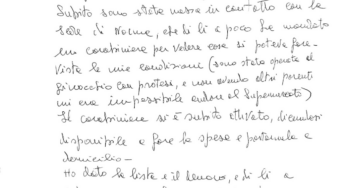 Subito sono stata messa in contatto con la
sede di Norme, che di lì a poco ha mandato
un carabiniere per vedere cosa si poteva fare.
Viste le mie condizioni (sono stata operata al
ginocchio con protesi, e non avendo altri parenti
mi era impossibile andare al Supermercato)
Il carabiniere si è subito attivato, dicendosi
disponibile a fare la spesa e portarmela a
domicilio -
Ho dato la lista e il denaro, e di lì a